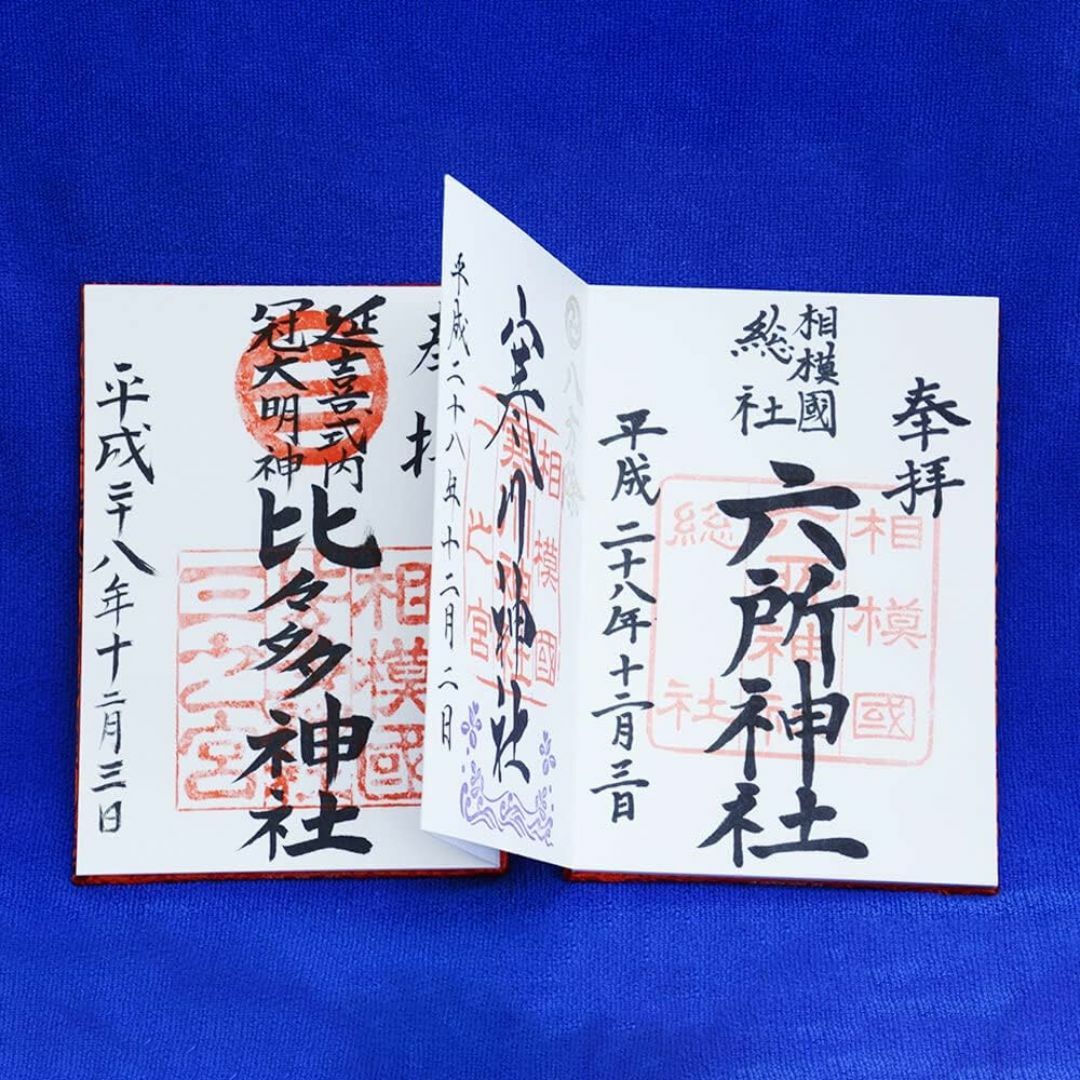 奉拝
相模國
総社
六所神社
平成二十八年十二月三日
相模國
六所神社
総社
八方除
寒川神社
平成二十八年十二月二日
相模國
寒川神社
一之宮
奉拝
延喜式内
冠大明神
比々多神社
平成二十八年十二月三日
相模國
三之宮